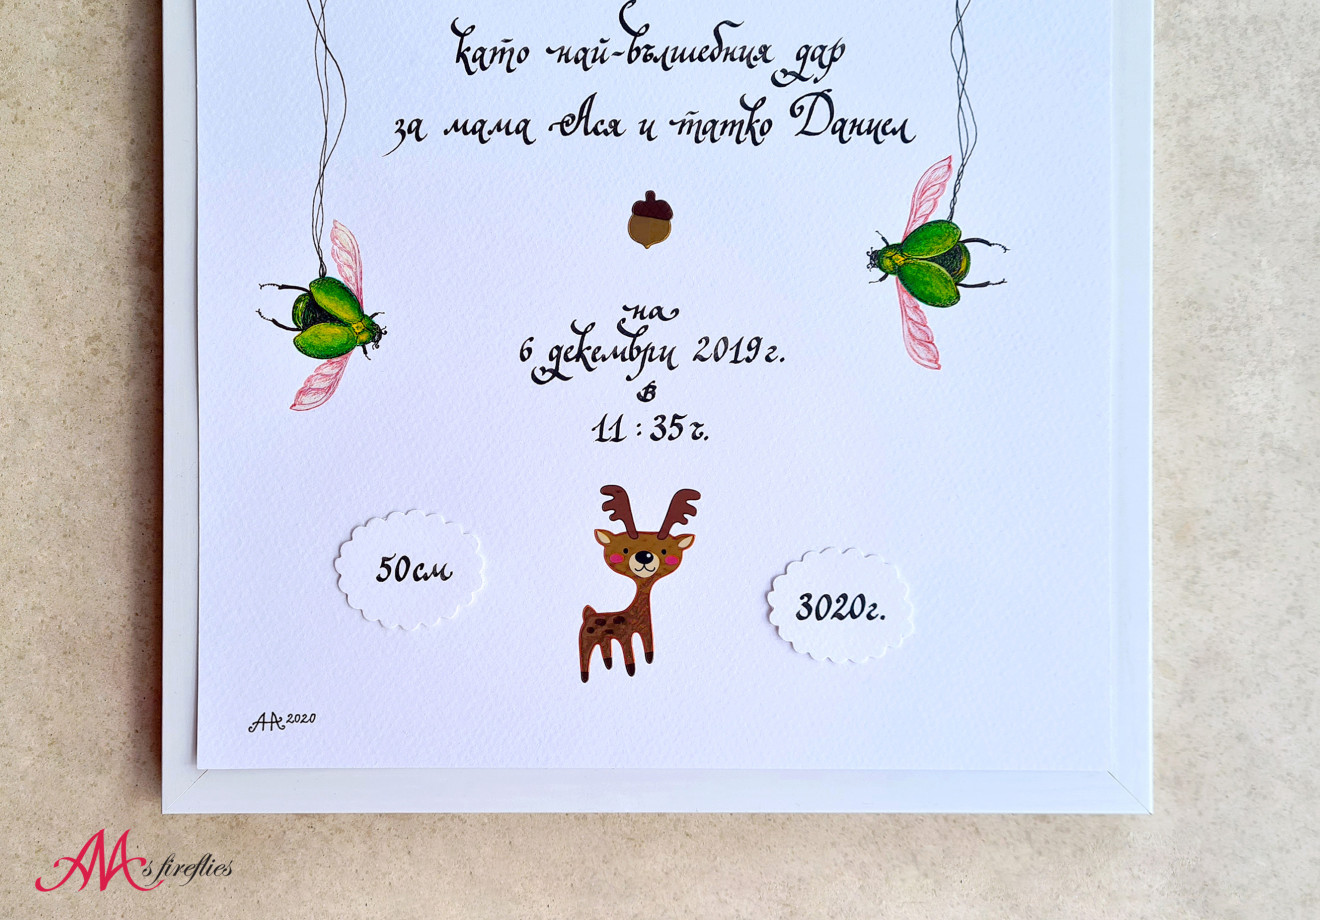 като най-вълшебния дар
за мама Ася и татко Даниел
на
6 декември 2019г.
в
11:35ч.
50см
3020г.
AA 2020
AM's fireflies